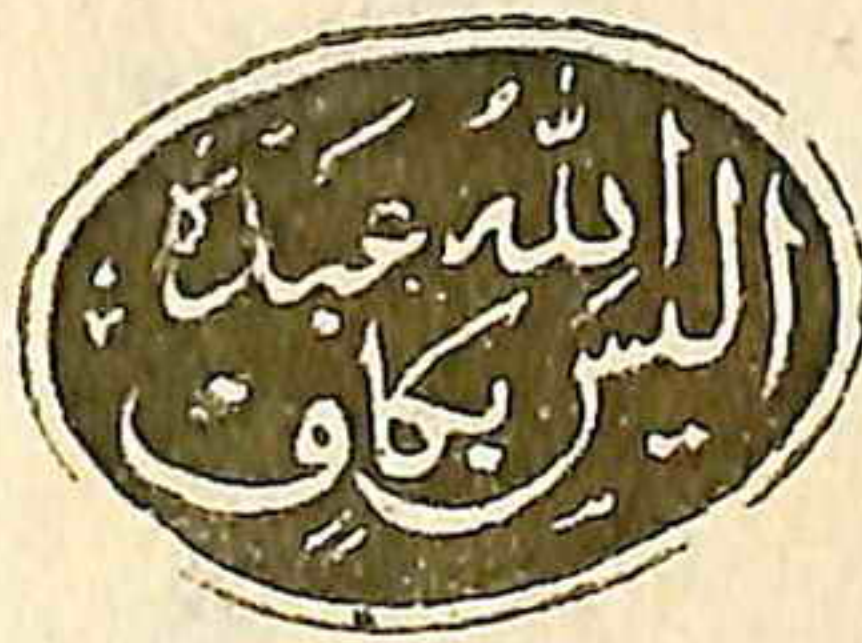 اليسَ اللّٰهُ
بكافٍ عَبدَهٗ